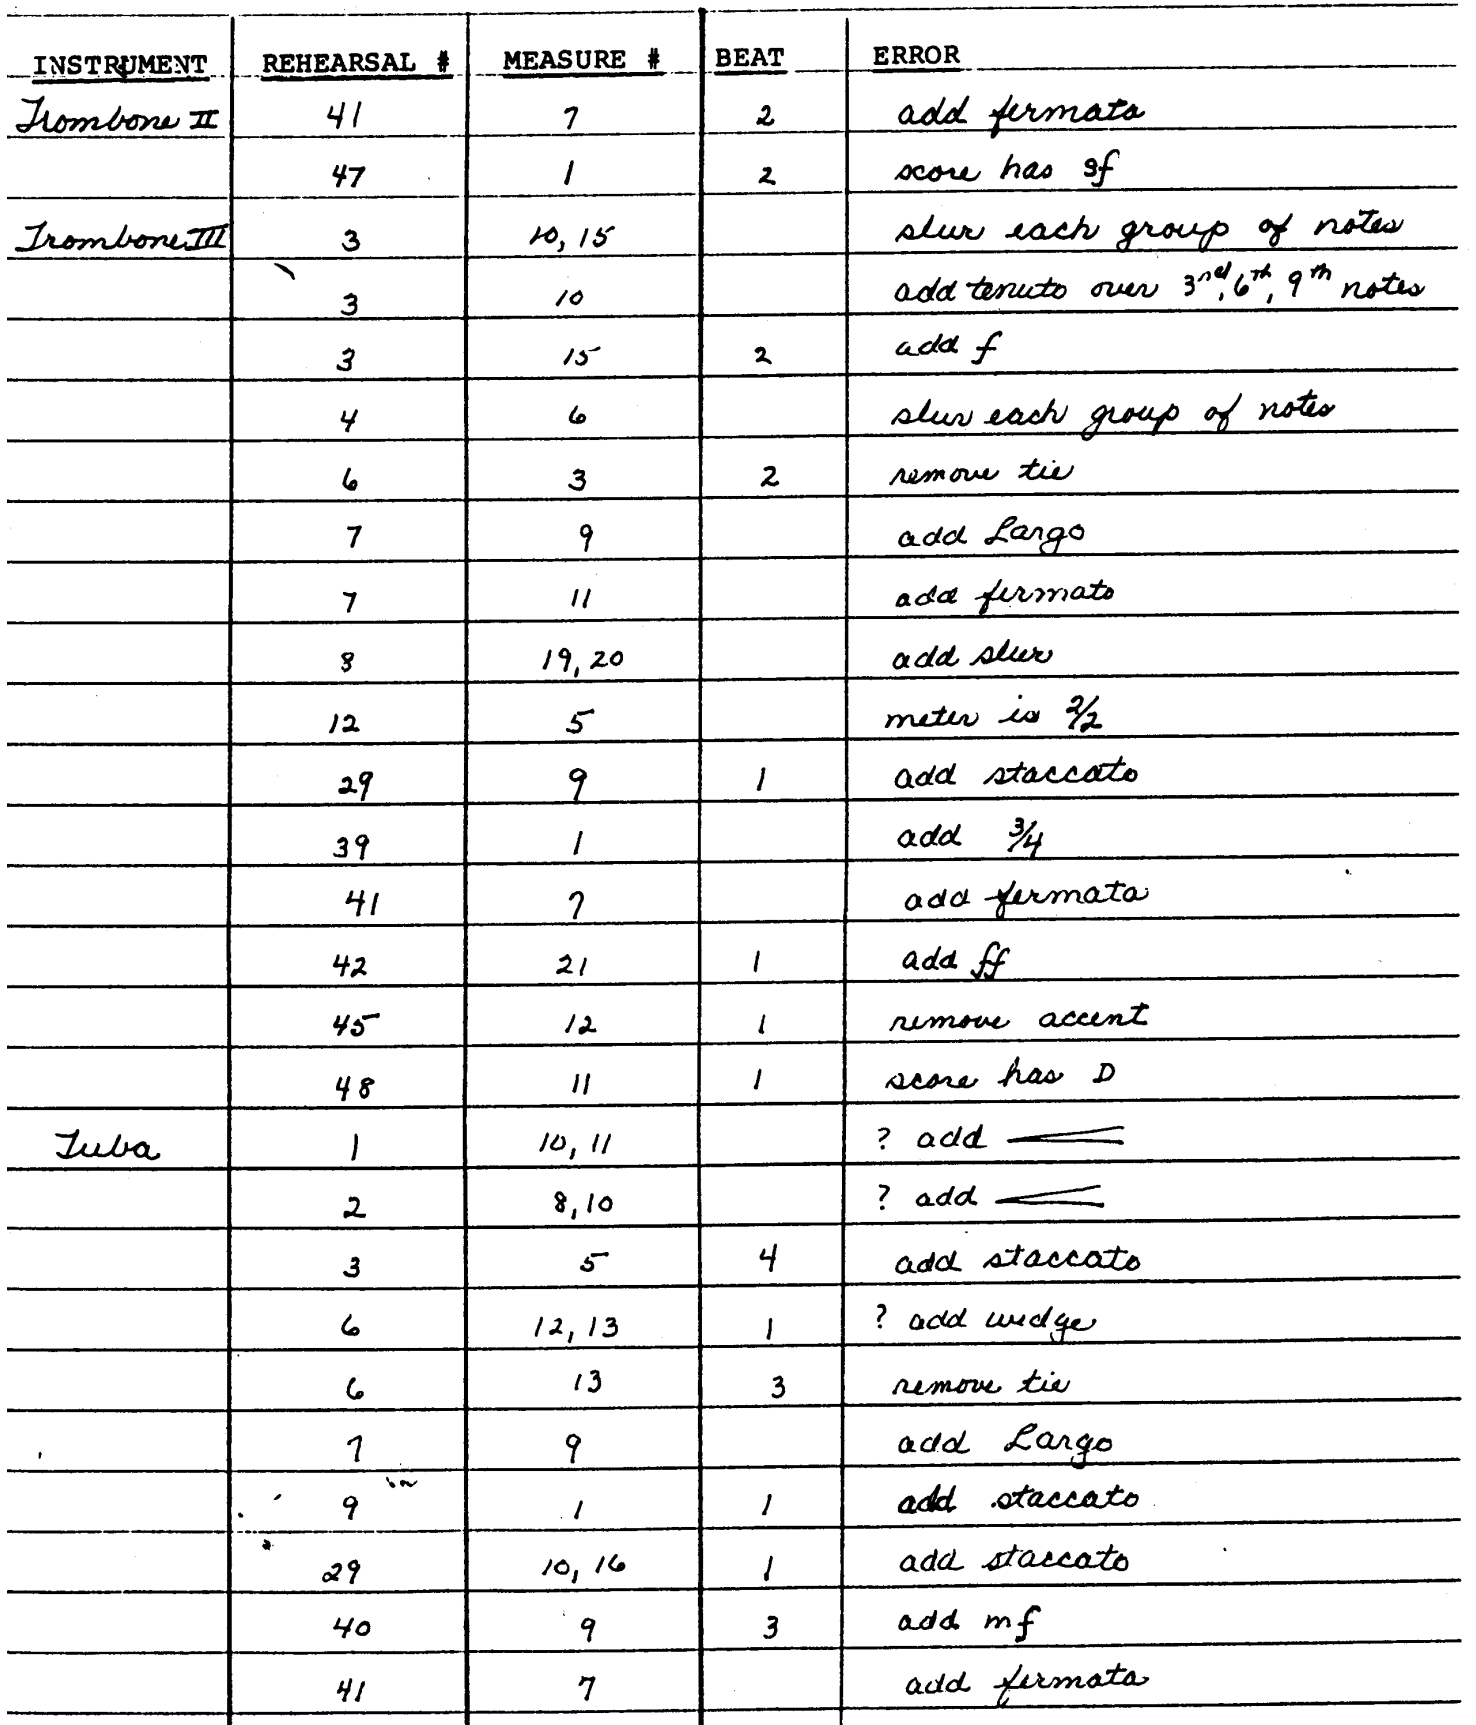 INSTRUMENT REHEARSAL # MEASURE # BEAT ERROR
Trombone II 41 7 2 add fermata
47 1 2 score has sf
Trombone III 3 10, 15 slur each group of notes
3 10 add tenuto over 3rd, 6th, 9th notes
3 15 2 add f
4 6 slur each group of notes
6 3 2 remove tie
7 9 add Largo
7 11 add fermato
8 19, 20 add slur
12 5 meter is 2/2
29 9 1 add staccato
39 1 add 3/4
41 7 add fermata
42 21 1 add ff
45 12 1 remove accent
48 11 1 score has D
Tuba 1 10, 11 ? add
2 8, 10 ? add
3 5 4 add staccato
6 12, 13 1 ? add wedge
6 13 3 remove tie
7 9 add Largo
9 1 1 add staccato
29 10, 16 1 add staccato
40 9 3 add mf
41 7 add fermata